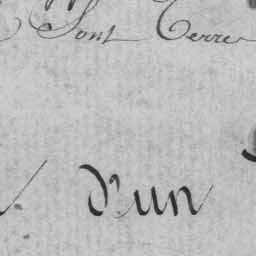 Sont Terre
d'un